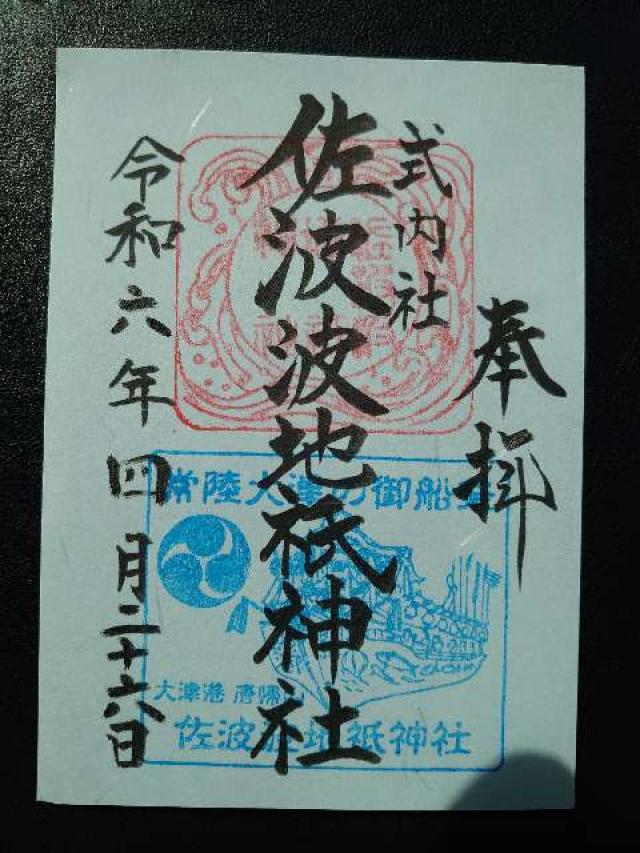 奉拝
式内社
佐波波地祇神社
令和六年四月二十六日
常陸大津の御船祭
大津港 唐帰山
佐波波地祇神社